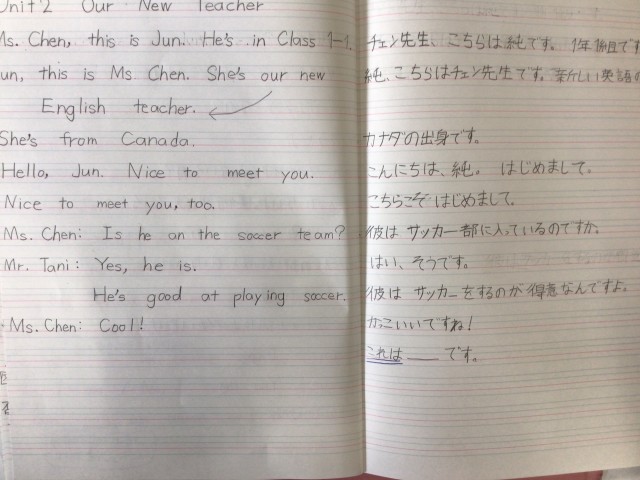 Unit 2 Our New Teacher
Ms. Chen, this is Jun. He's in Class 1-1.
un, this is Ms Chen. She's our new
English teacher.
She's from Canada.
Hello, Jun. Nice to meet you.
Nice to meet you, too.
Ms. Chen: Is he on the soccer team?
Mr. Tani: Yes, he is.
He's good at playing soccer.
Ms. Chen: Cool!
チェン先生、こちらは純です。1年1組です
純、こちらはチェン先生です。新しい英語の
カナダの出身です。
こんにちは、純。はじめまして。
こちらこそはじめまして。
彼はサッカー部に入っているのですか。
はい、そうです。
彼はサッカーをするのが得意なんですよ。
かっこいいですね!
これは___です。